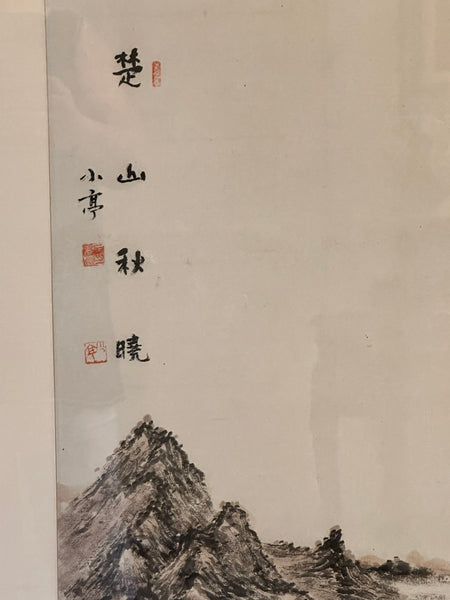 楚山秋曉
小亭